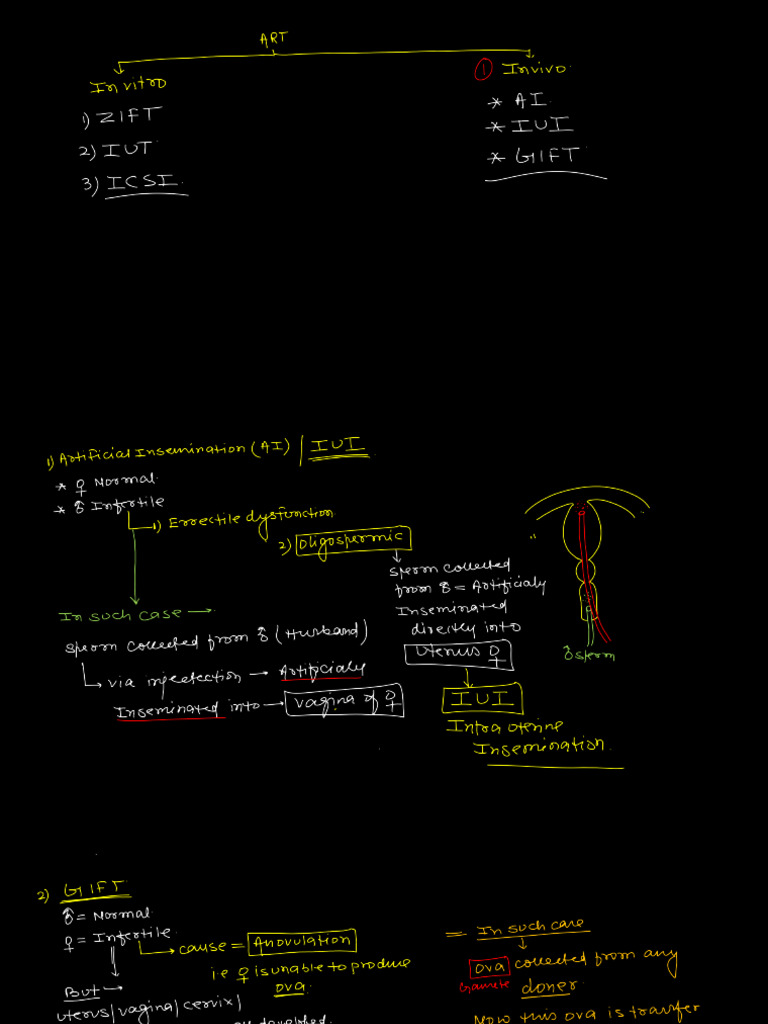 ART
In vitro
1) ZIFT
2) IUT
3) ICSI
① Invivo
* AI
* IUI
* GIFT
1) Artificial Insemination (AI) | IUI
* ♀ Normal
* ♂ Infertile
1) Errectile dysfunction
2) Oligospermic
sperm collected
from ♂ = Artificialy
Inseminated
directly into
uterus ♀
IUI
Intra uterine
Insemination
♂ sperm
In such case →
sperm collected from ♂ (Husband)
via injectection → Artificialy
Inseminated into → vagina of ♀
2) GIFT
♂ = Normal
♀ = Infertile
cause = Anovulation
i.e ♀ is unable to produce
ova.
But →
uterus/vagina/cervix/
= In such care
Ova collected from any
Gamete doner.
Now this ova is transfer